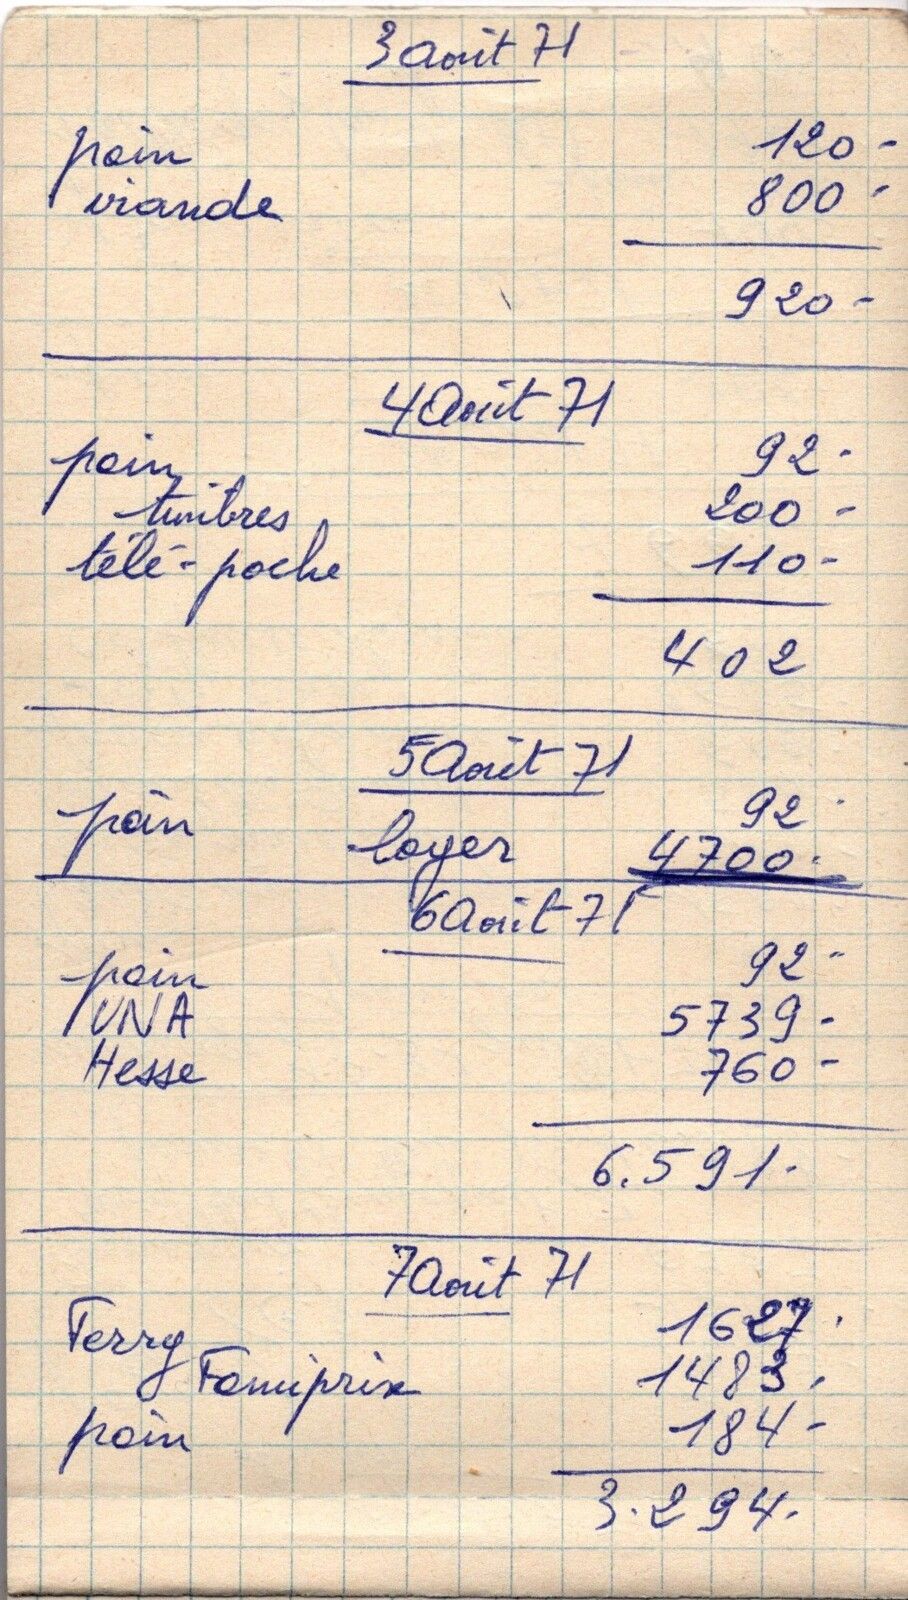 3 Août 71
pain 120-
viande 800-
920-
4 Août 71
pain 92-
timbres 200-
télé-poche 110-
402
5 Août 71
pain 92-
loyer 4700-
6 Août 71
pain 92-
UNA 5739-
Hesse 760-
6.591.
7 Août 71
Ferry 1627.
Famiprix 1483.
pain 184-
3.294.